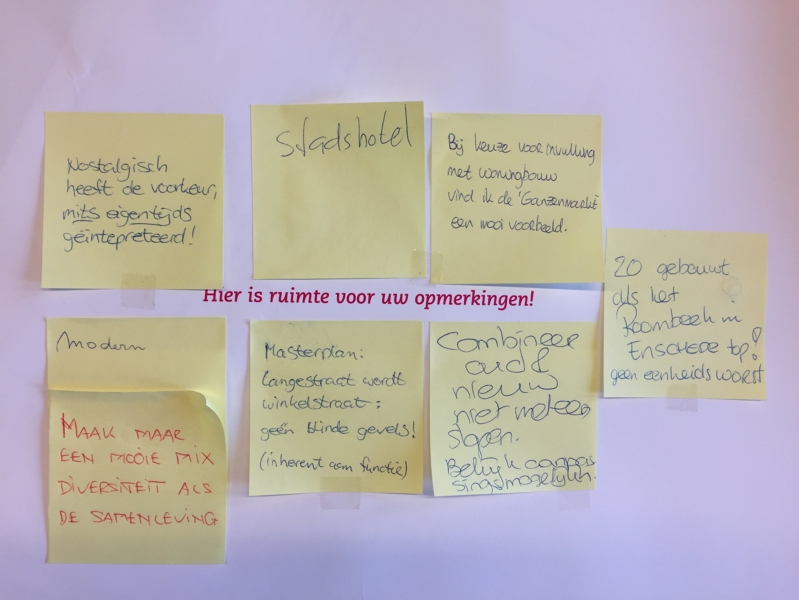 Nostalgisch
heeft de voorkeur,
mits eigentijds
geïntepreteerd!
Stadshotel
Bij keuze voor invulling
met woningbouw
vind ik de 'Ganzenmarkt'
een mooi voorbeeld.
20 gebouwt
als het
Roombeek in
ENSCHEDE top!
geen eenheids worst
Hier is ruimte voor uw opmerkingen!
Modern
MAAK MAAR
EEN MOOIE MIX
DIVERSITEIT ALS
DE SAMENLEVING
Masterplan:
Langestraat wordt
winkelstraat:
geen blinde gevels!
(inherent aan functie)
Combineer
oud &
nieuw
niet meteen
slopen.
Bekijk aanpas
singsmogelijkh.